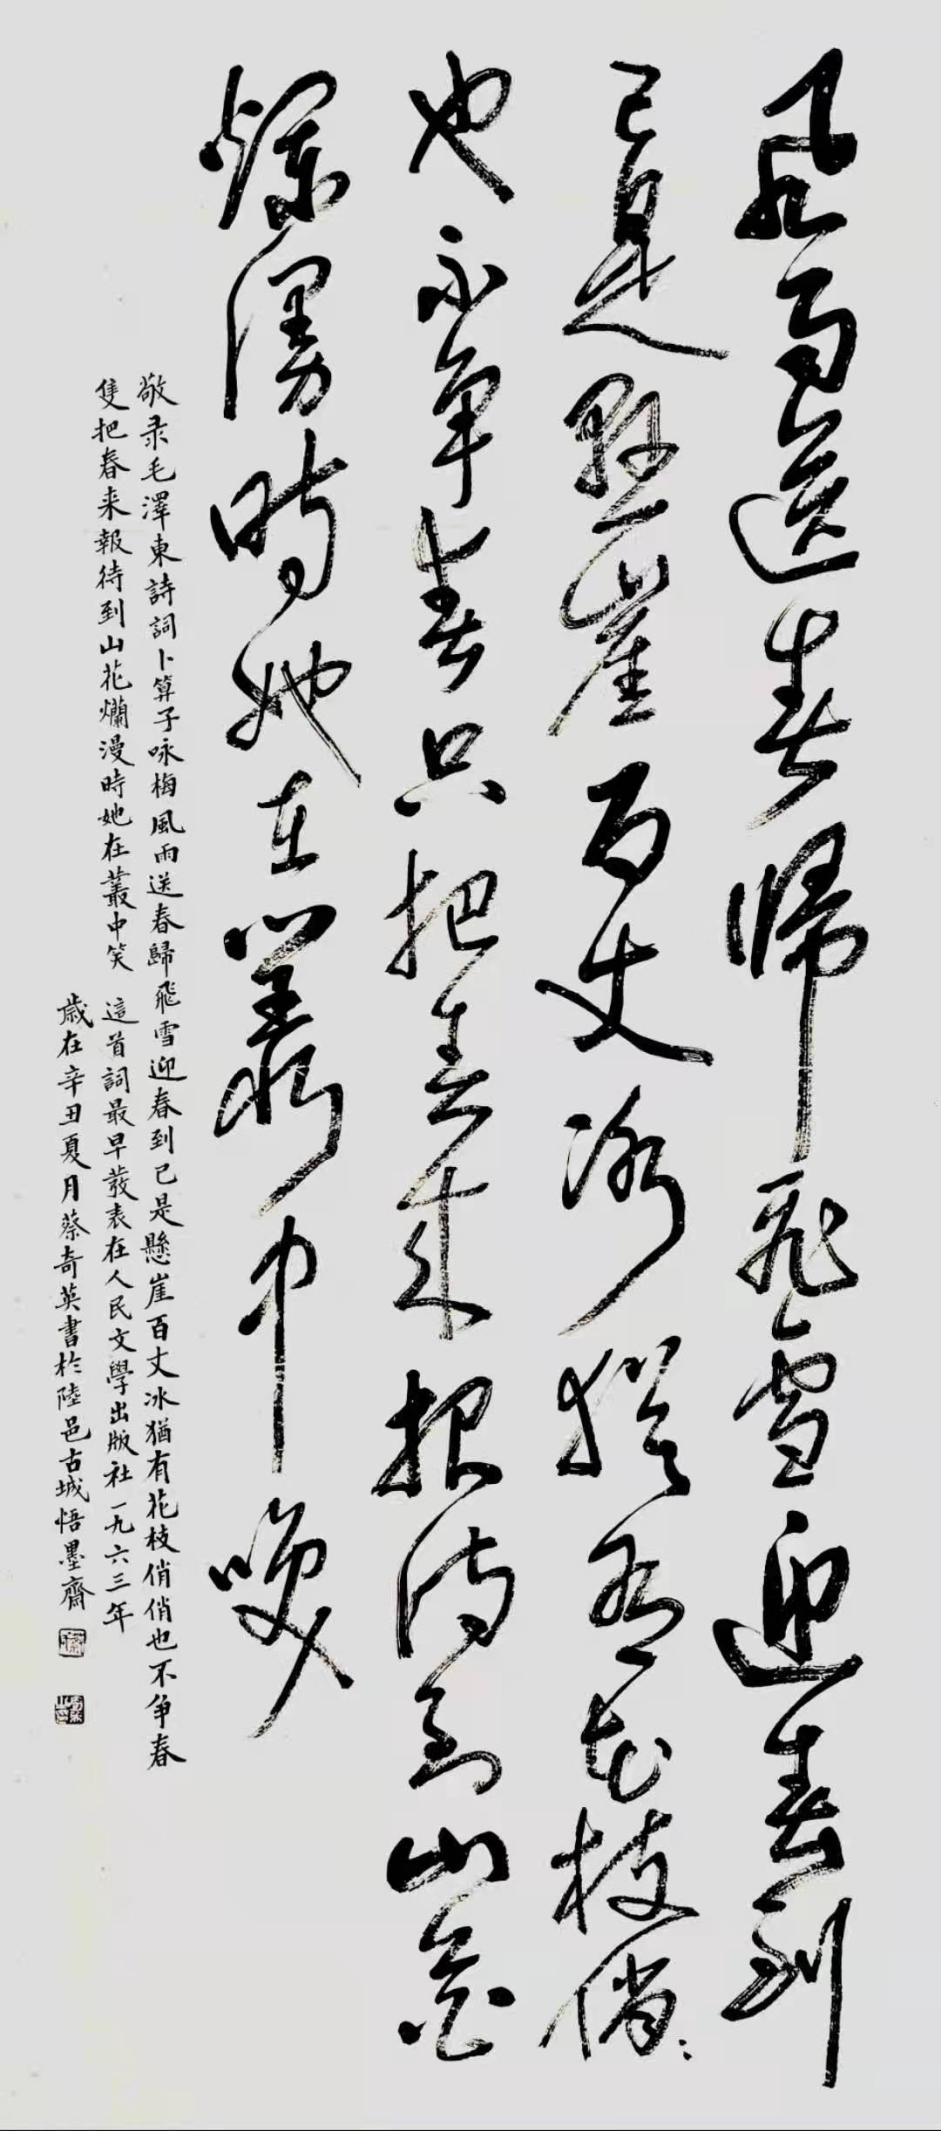 風雨送春歸飛雪迎春到
已是懸崖百丈冰猶有花枝俏:
也不争春只把春来報待到山花
爛漫時她在叢中咲
敬录毛澤東詩詞卜算子咏梅風雨送春歸飛雪迎春到已是懸崖百丈冰猶有花枝俏俏也不争春
隻把春来報待到山花爛漫時她在叢中笑 這首詞最早發表在人民文學出版社一九六三年
歲在辛丑夏月蔡奇英書於陸邑古城悟墨齋